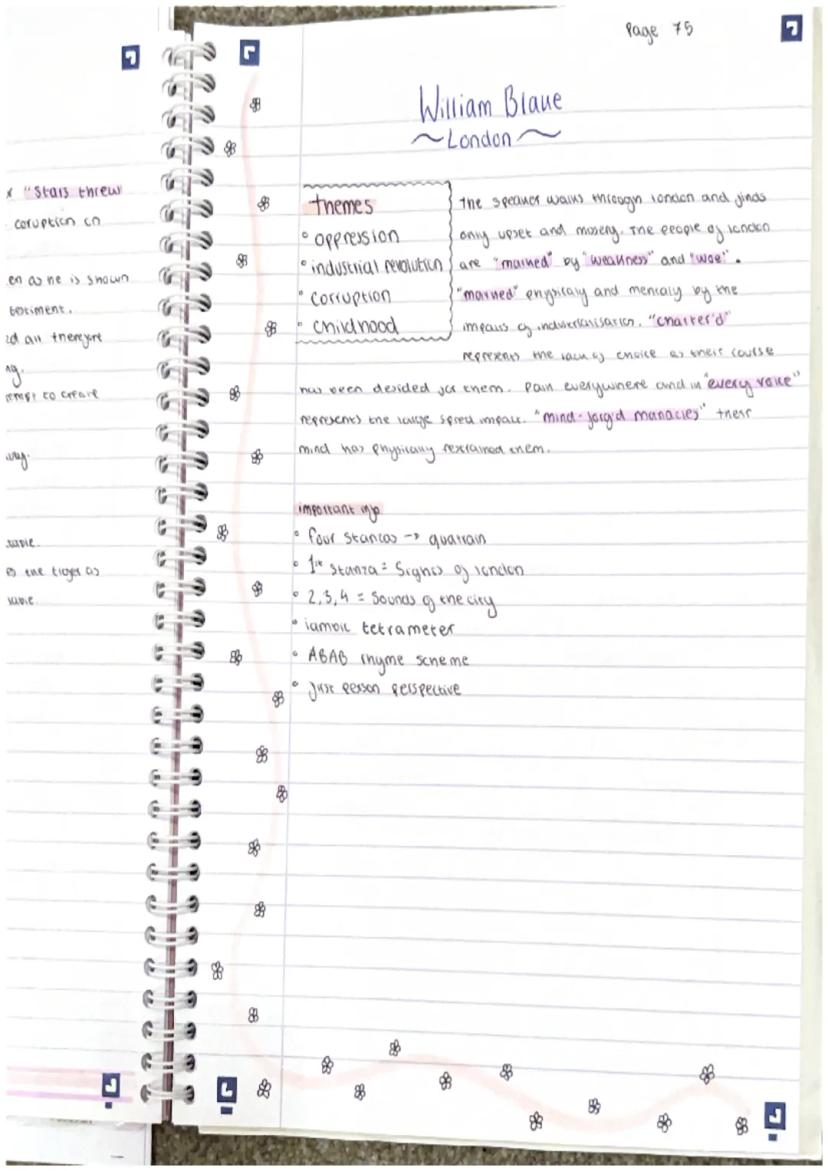 x "Stars threw
coruption in
en as he is shown
ed an therefore
ng.
empt to create
way.
es the tiger as
Page 75
William Blake
~London~
themes
• oppression
• industrial revolution
• corruption
• childhood
The speaker walks through london and finds
only upset and misery. The people of london
are "marked" by "weakness" and "woe".
"marked" physicaly and mentaly by the
impacts of industrialisation. "charter'd"
represents the lack of choice as their course
has been desided for them. Pain everywhere and in "every voice"
represents the large spred impact. "mind-forg'd manacles" their
mind has physically restrained them.
important info
• four stanzas -> quatrain
• 1st stanza = Sights of london
• 2,3,4 = Sounds of the city
• iambic tetrameter
• ABAB rhyme scheme
• first person perspective